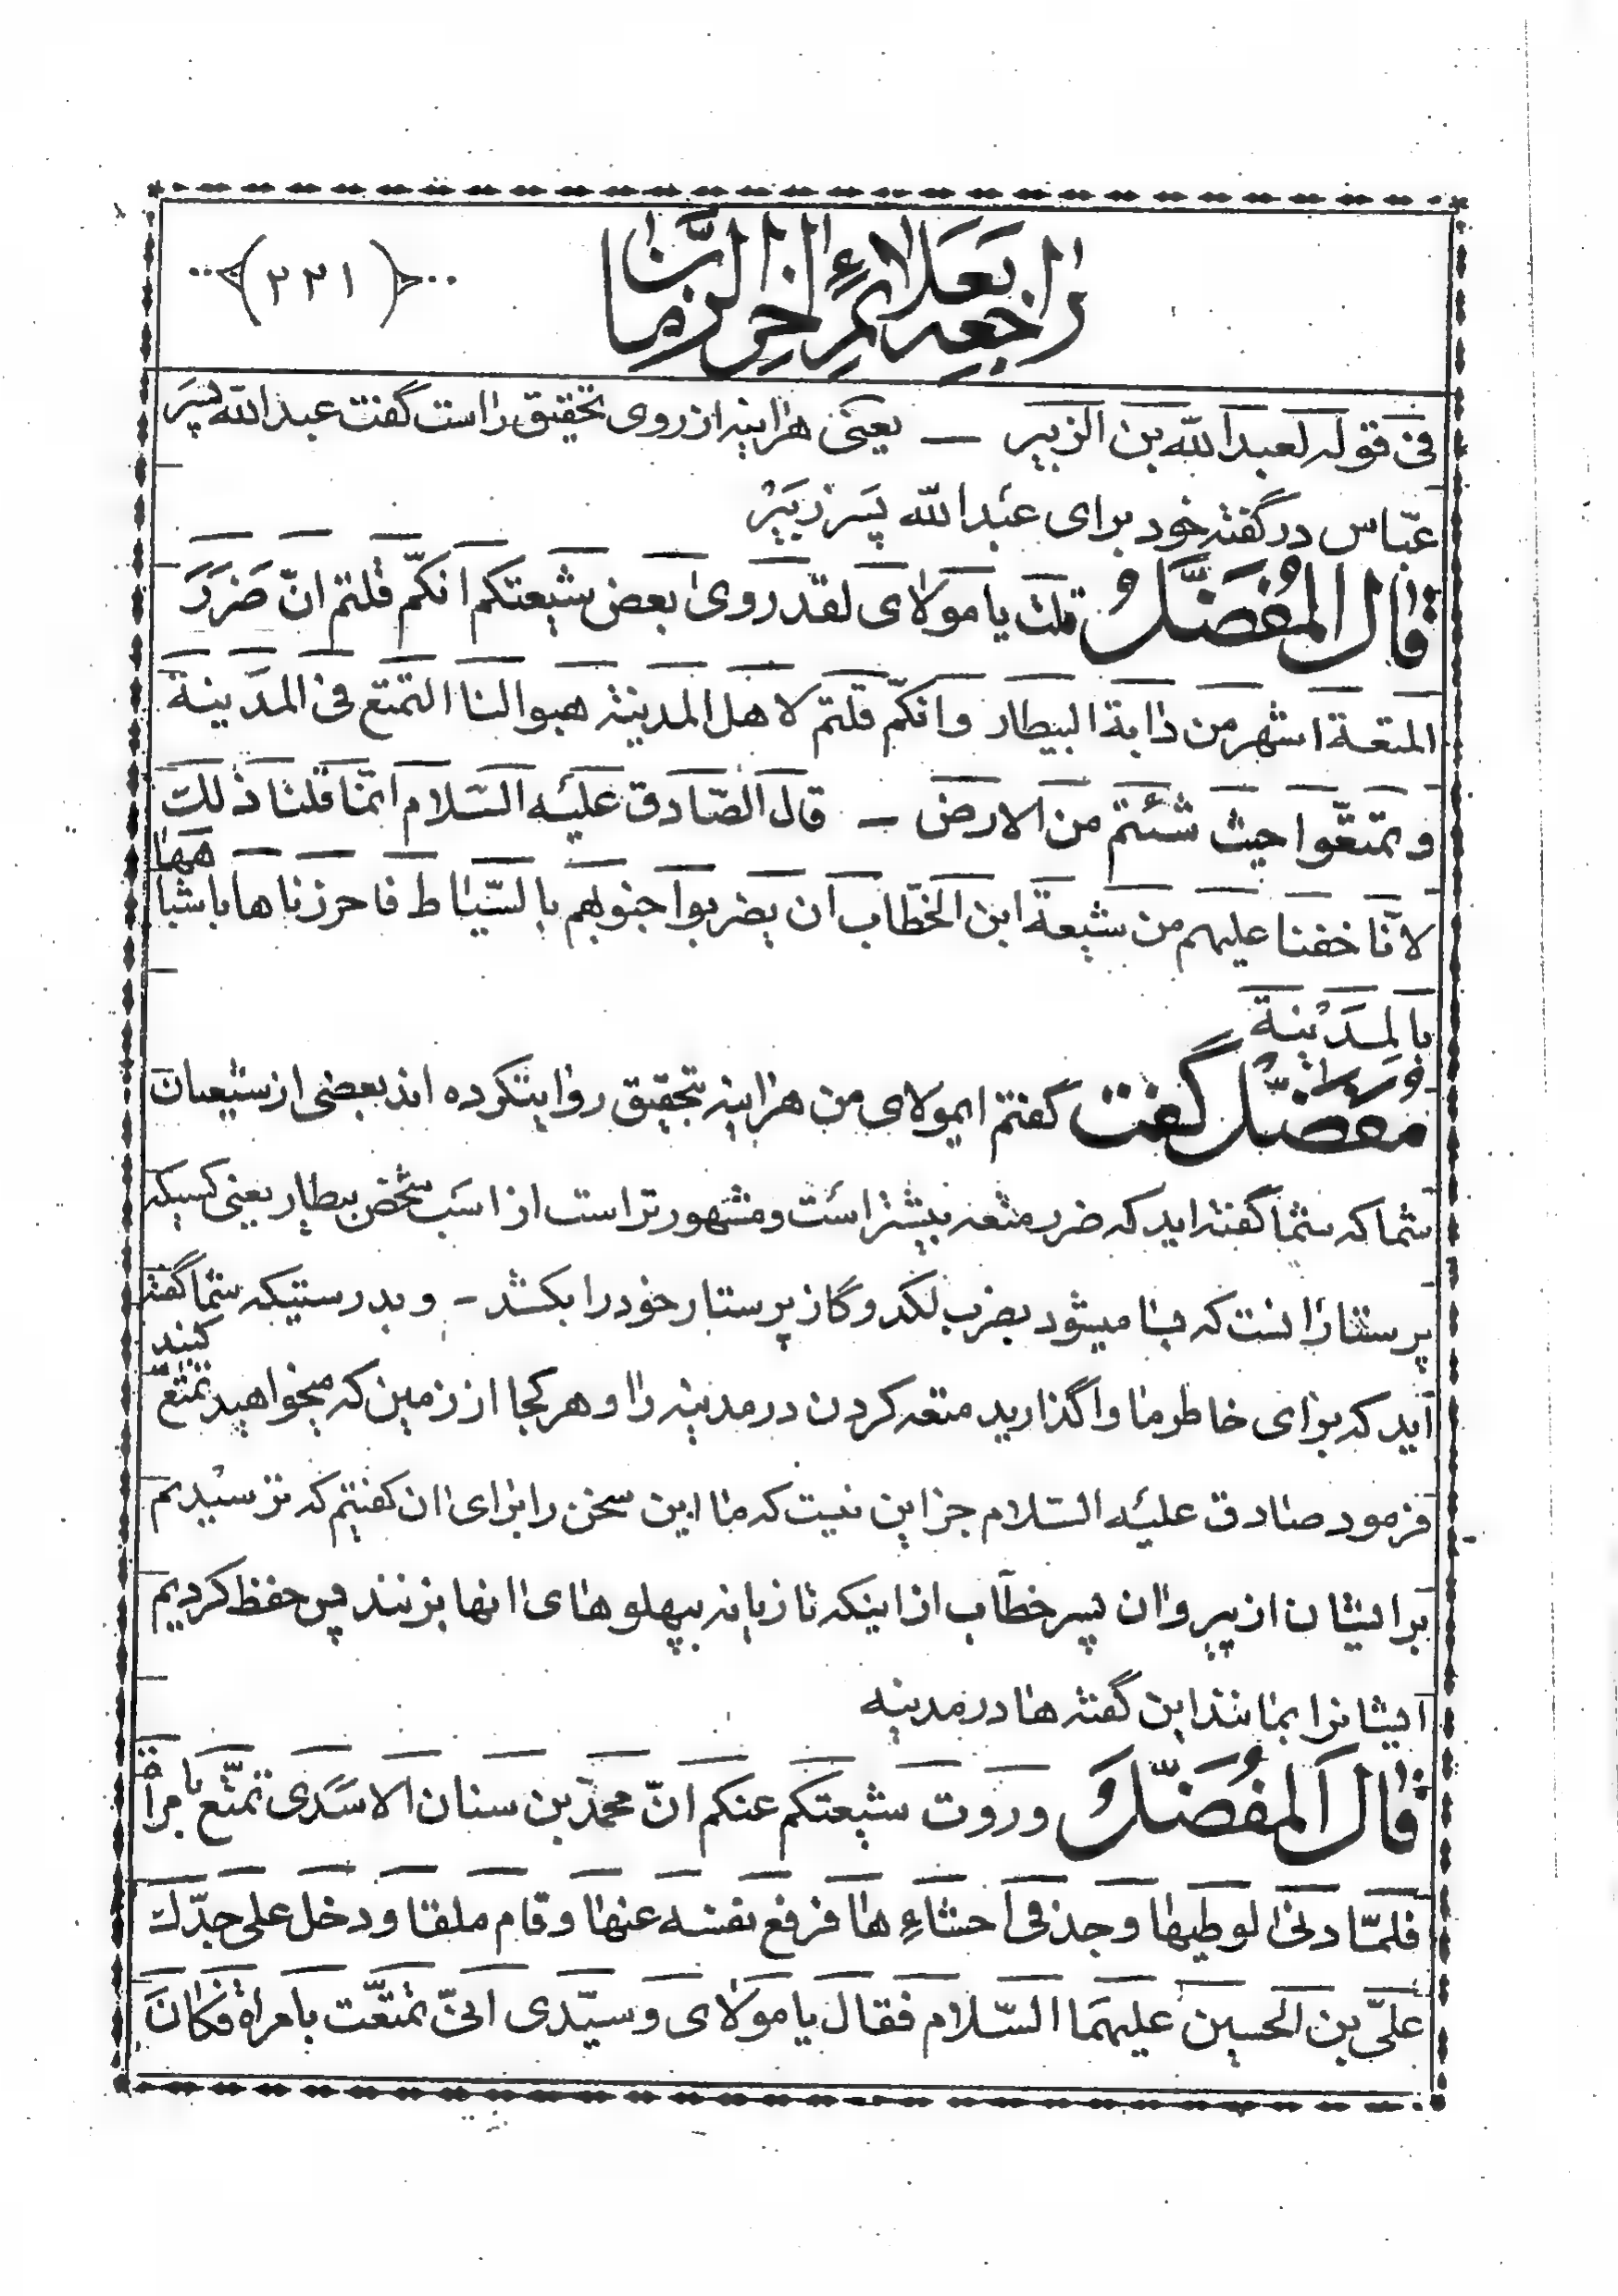 راجعه بعلائم اخر الزمان
(۲۲۱)
فی قوله لعبدالله بن الزبیر — یعنی هراینه از روی تحقیق راست گفت عبدالله پسر
عبّاس در گفته خود برای عبدالله پسر زبیر
قال المفضّل قلت یا مولای لقد روی بعض شیعتکم انکّم قلتم انّ ضرر
المتعة اشهر من دابة البیطار وانکّم قلتم لاهل المدینه هبوا لنا التمتع فی المدینة
و تمتعّوا حیث شئتم من الارض — قال الصّادق علیه السّلام انمّا قلنا ذلک
لانّا خفنا علیهم من شیعة ابن الخطّاب ان یضربوا جنوبهم بالسّیاط فاحرزناها باشباهها
بالمدینة
مفضّل گفت گفتم ایمولای من هراینه بتحقیق روایتکرده اند بعضی از شیعیان
شما که شما گفته اید که ضرر متعه بیشتر است و مشهورتر است از اسب شخص بیطار یعنی کسیکه
پرستار انست که بنا میشود بضرب لکد و گاز پرستار خود را بکشد - و بدرستیکه شما گفته
اید که برای خاطر ما واگذارید متعه کردن در مدینه را و هر کجا از زمین که میخواهید تمتّع کنند
فرمود صادق علیه السّلام جز این نیست که ما این سخن را برای ان گفتیم که ترسیدیم
بر ایشان از پیروان پسر خطّاب از اینکه تازیانه بپهلوهای انها بزنند پس حفظ کردیم
ایشانرا بمانند این گفته ها در مدینه
قال المفضّل وروت شیعتکم عنکم انّ محمّد بن سنان الاسدی تمتّع بامراة
فلمّا دنی لوطیها وجد فی احشاءِ ها فرفع نفسه عنها وقام ملقا ودخل علی جدّک
علیّ بن الحسین علیهما السّلام فقال یا مولای وسیّدی انیّ تمتعّت بامراة فکان